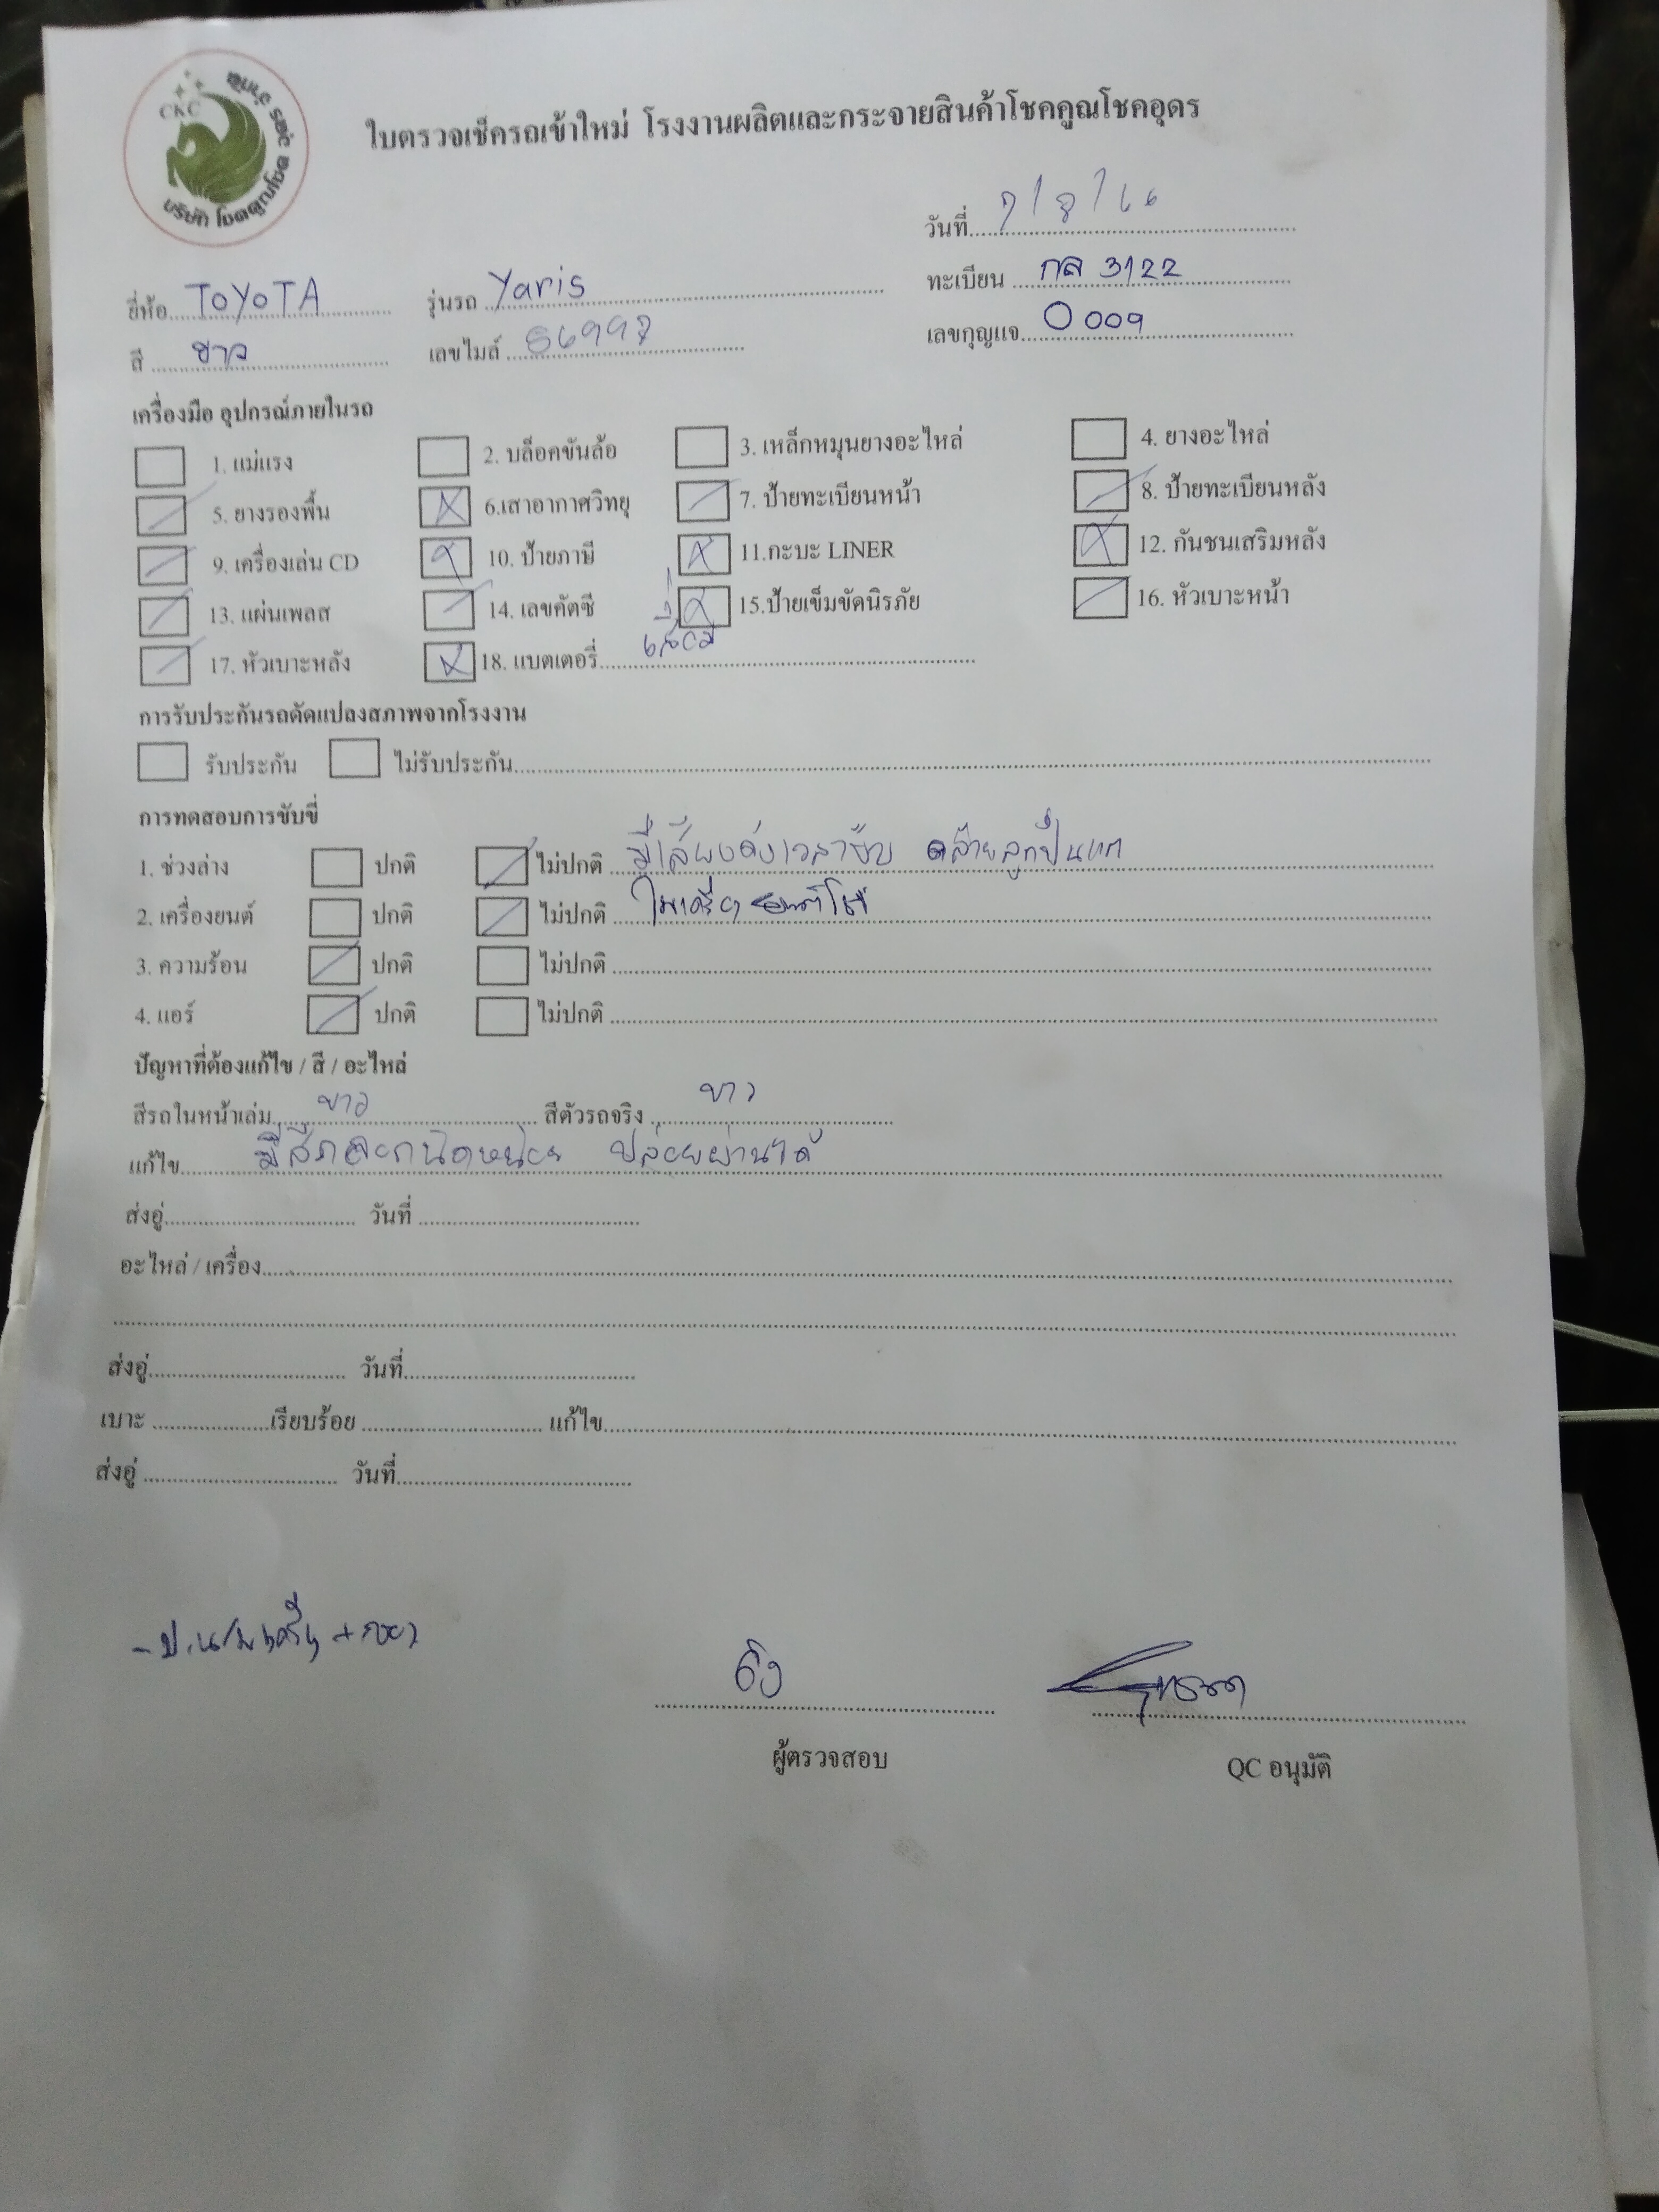 CKC
บริษัท โชคคูณโชค อุดร จำกัด
ใบตรวจเช็ครถเข้าใหม่ โรงงานผลิตและกระจายสินค้าโชคคูณโชคอุดร
วันที่ 7/8/66
ยี่ห้อ TOYOTA รุ่นรถ Yaris ทะเบียน กล 3122
สี ขาว เลขไมล์ 56997 เลขกุญแจ O 009
เครื่องมือ อุปกรณ์ภายในรถ
1. แม่แรง 2. บล็อคขันล้อ 3. เหล็กหมุนยางอะไหล่ 4. ยางอะไหล่
5. ยางรองพื้น 6.เสาอากาศวิทยุ 7. ป้ายทะเบียนหน้า 8. ป้ายทะเบียนหลัง
9. เครื่องเล่น CD 10. ป้ายภาษี 11.กะบะ LINER 12. กันชนเสริมหลัง
13. แผ่นเพลส 14. เลขคัตซี 15.ป้ายเข็มขัดนิรภัย 16. หัวเบาะหน้า
17. หัวเบาะหลัง 18. แบตเตอรี่
การรับประกันรถดัดแปลงสภาพจากโรงงาน
รับประกัน ไม่รับประกัน
การทดสอบการขับขี่
1. ช่วงล่าง ปกติ ไม่ปกติ มีเสียงดังเวลาขับ คล้ายลูกปืนแตก
2. เครื่องยนต์ ปกติ ไม่ปกติ ไฟเครื่องยนต์โชว์
3. ความร้อน ปกติ ไม่ปกติ
4. แอร์ ปกติ ไม่ปกติ
ปัญหาที่ต้องแก้ไข / สี / อะไหล่
สีรถในหน้าเล่ม ขาว สีตัวรถจริง ขาว
แก้ไข มีสีถลอกนิดหน่อย ปล่อยผ่านได้
ส่งอู่ วันที่
อะไหล่ / เครื่อง
ส่งอู่ วันที่
เบาะ เรียบร้อย แก้ไข
ส่งอู่ วันที่
ผู้ตรวจสอบ QC อนุมัติ